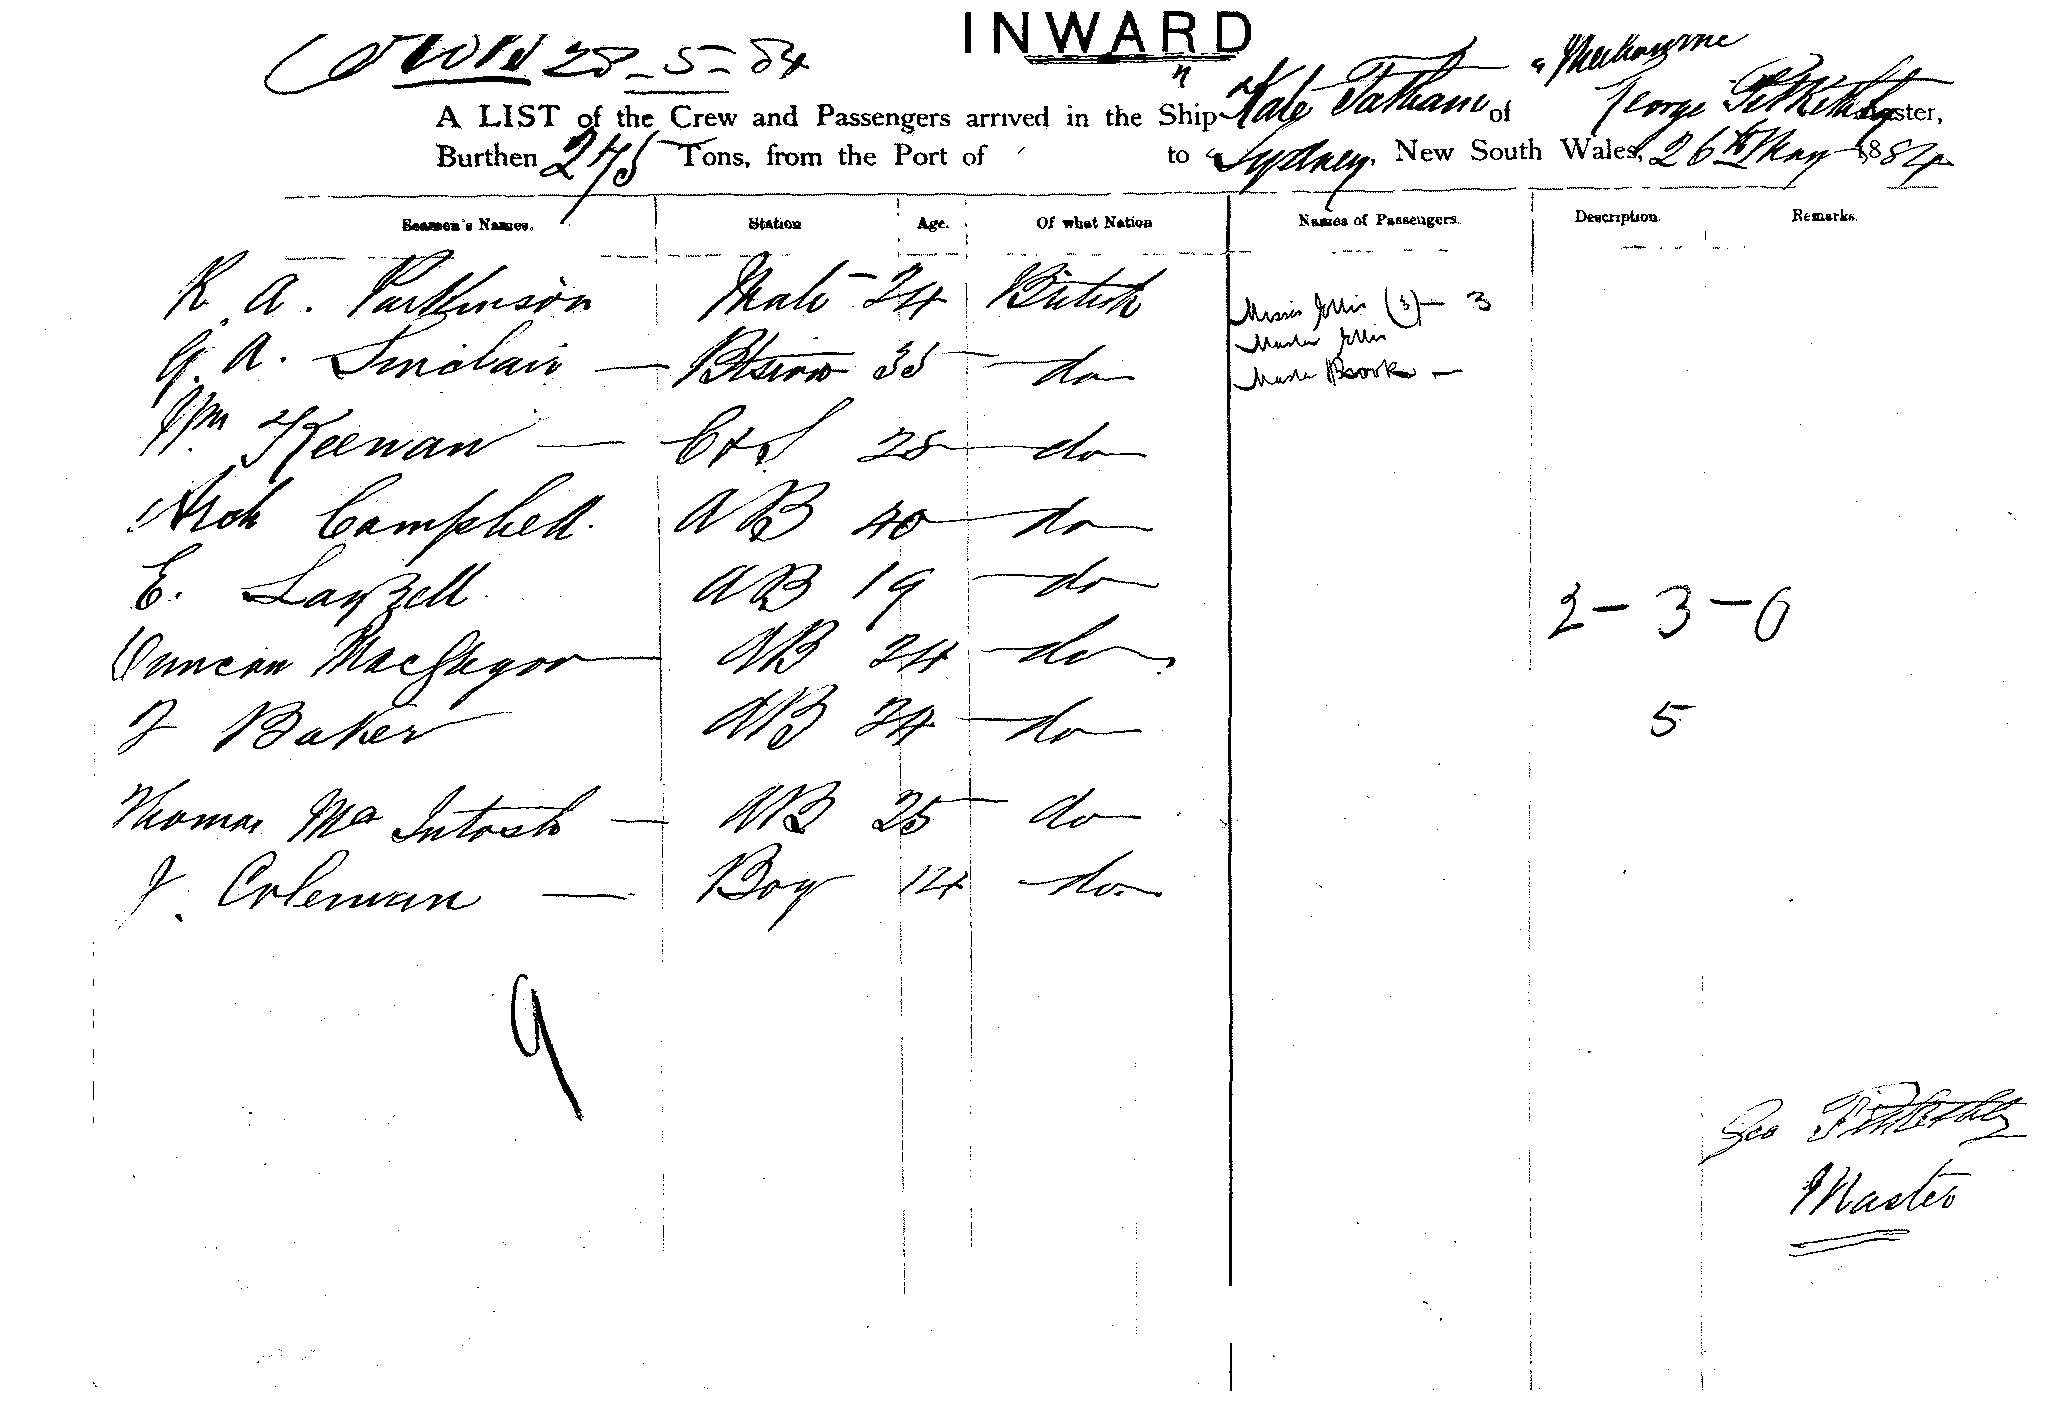 INWARD
28-5-84
A LIST of the Crew and Passengers arrived in the Ship "Kate Tatham of "Melbourne George Master,
Burthen 245 Tons, from the Port of to "Sydney. New South Wales, 26th May 1884
Seamen's Names. Station Age. Of what Nation Names of Passengers. Description. Remarks.
R. A. Parkinson Mate - 24 British
G. A. Sinclair — Btsman 35 — do Misses Jollis (3) — 3
Master Jollis
Master Brooke —
Wm Keenan — C & S 28 — do
Arch Campbell. AB 40 — do
E. Layzell AB 19 — do 2 - 3 - 0
Duncan MacGregor — AB 24 — do
J Baker AB 24 — do 5
Thomas Mc Intosh — AB 25 — do
J. Coleman — Boy 14 — do
9
Geo
Master